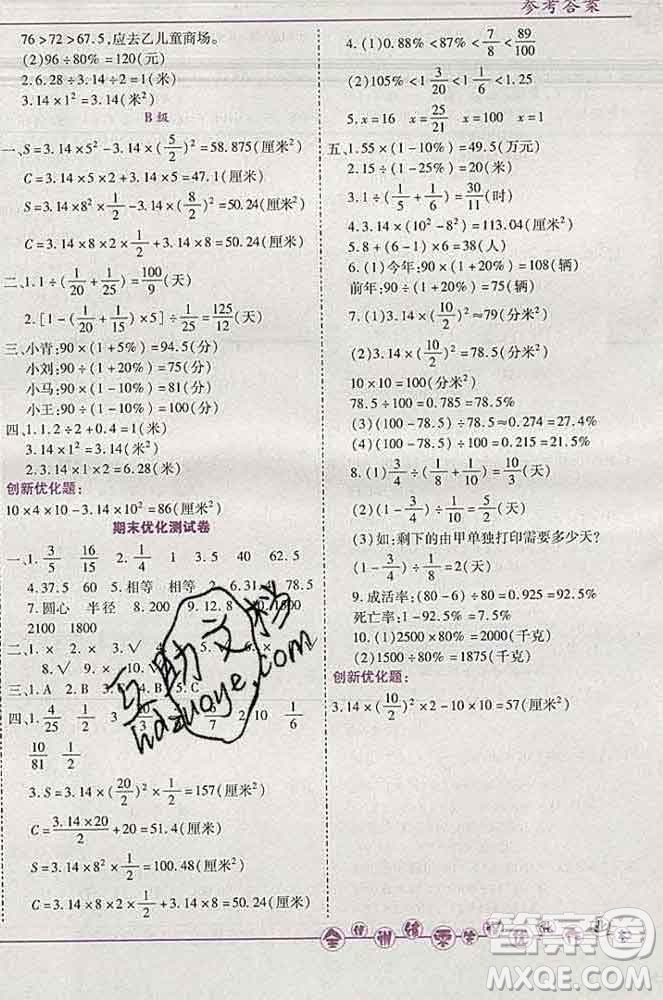 参考答案
76>72>67.5,应去乙儿童商场。
(2)96÷80%=120(元)
2.6.28÷3.14÷2=1(米)
3.14×1²=3.14(米²)
B级
一、S=3.14×5²-3.14×(5/2)²=58.875(厘米²)
C=3.14×5×2+3.14×5=47.1(厘米)
S=3.14×8²×1/2+3.14×(8/2)²×1/2=50.24(厘米²)
C=3.14×8×2×1/2+3.14×8=50.24(厘米)
二、1.1÷(1/20+1/25)=100/9(天)
2.[1-(1/20+1/15)×5]÷1/25=125/12(天)
三、小青:90×(1+5%)=94.5(分)
小刘:90×(1+0%)=90(分)
小马:90×(1-10%)=81(分)
小王:90×(1+8%)=97.2(分)
四、1.1.2÷2+0.4=1(米)
3.14×1²=3.14(米²)
2.3.14×1×2=6.28(米)
创新优化题:
10×4×10-3.14×10²=86(厘米²)
期末优化测试卷
一、1.3/5 16/15 2.1/4 1 3.5 40 62.5
4.37.5 60 5.相等 相等 2 6.31.4 78.5
7.圆心 半径 8.200 9.12.8 10.1800
2100 1800
二、1.× 2.× 3.√
8.√ 9.×
三、1.A 2.B 3.B 4.B 5.C
四、1.4/25 1/2 3 2 10 1/6
10/81 1/2
3.S=3.14×(20/2)²×1/2=157(厘米²)
C=3.14×20/2+20=51.4(厘米)
S=3.14×8²×1/2=100.48(厘米²)
C=3.14×8×2×1/2+3.14×8=50.24(厘米)
4.(1)0.88%<87%<7/8<89/100
(2)105%<1 3/20<1 1/6<1.25
5.x=16 25/21 x=100 x=8
五、1.55×(1-10%)=49.5(万元)
2.15÷(1-10%)=50/3(天)
3.1÷(1/5+1/6)=30/11(时)
4.3.14×(10²-8²)=113.04(厘米²)
5.8+(6-1)×6=38(人)
6.(1)今年:90×(1+20%)=108(辆)
前年:90÷(1+20%)=75(辆)
7.(1)3.14×(10/2)²≈79(分米²)
(2)3.14×(10/2)²=78.5(分米²)
10×10=100(分米²)
78.5÷100=0.785=78.5%
(3)(100-78.5)÷78.5≈27.4%
(4)(100-78.5)÷100=21.5%
8.(1)3/4÷(1/8+1/10)=10/3(天)
(2)3/4÷1/8=6(天)
(3)如:剩下的由甲单独打印需要多少天?
(1-3/4)÷1/8=2(天)
9.成活率:(80-6)÷80=0.925=92.5%
死亡率:1-92.5%=7.5%
10.(1)2500×80%=2000(千克)
(2)1500÷80%=1875(千克)
创新优化题:
3.14×(10/2)²×2-10×10=57(厘米²)
互助文档
hdzuoye.com
答案圈
MXQE.COM